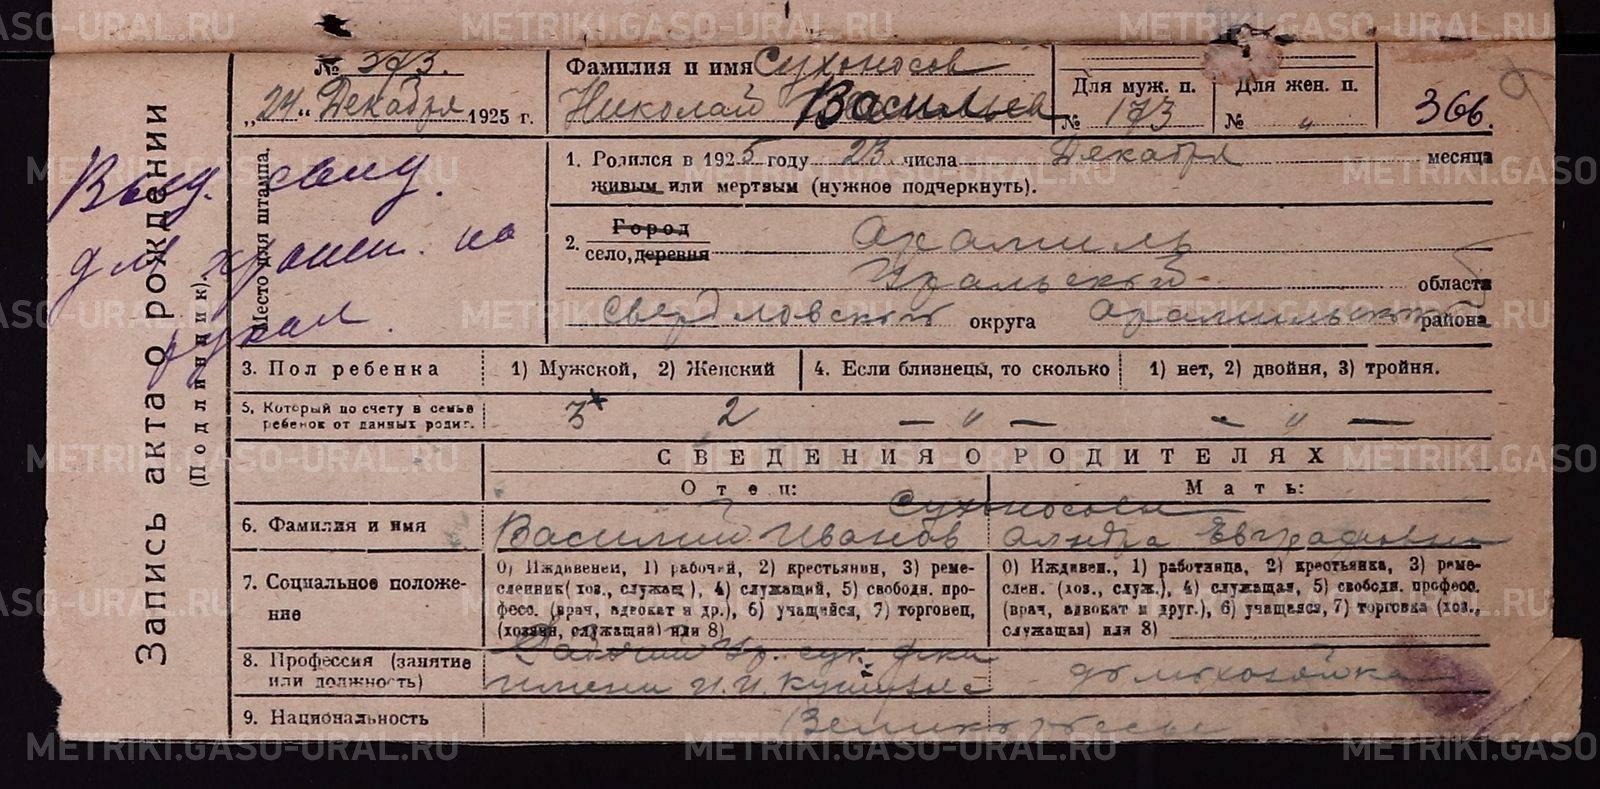 METRIKI.GASO-URAL.RU
№ 373.
„24“ Декабря 1925 г.
Фамилия и имя Сухоносов
Николай Васильев
Для муж. п.
№ 173
Для жен. п.
№ „
366.
Запись акта о рождении
(Подлинник).
Место для штампа.
1. Родился в 1925 году 23 числа Декабря месяца
живым или мертвым (нужное подчеркнуть).
2. Город
село, деревня
Арамиль
Уральской области
Свердловский округа Арамильский района
3. Пол ребенка
1) Мужской, 2) Женский
4. Если близнецы, то сколько
1) нет, 2) двойня, 3) тройня.
5. Который по счету в семье
ребенок от данных родит.
3 2 — „ — - „ —
СВЕДЕНИЯ О РОДИТЕЛЯХ
Отец:
Мать:
6. Фамилия и имя
Сухоносовы
Василий Иванов
Евграфовна
7. Социальное положе-
ние
0) Иждивенец, 1) рабочий, 2) крестьянин, 3) реме-
сленник (хоз., служащ.), 4) служащий, 5) свободн. про-
фесс. (врач, адвокат и др.), 6) учащийся, 7) торговец,
(хозяин, служащий) или 8)
0) Иждивен., 1) работница, 2) крестьянка, 3) реме-
слен. (хоз., служ.), 4) служащая, 5) свободн. професс.
(врач, адвокат и друг.), 6) учащаяся, 7) торговка (хоз.,
служащая) или 8)
8. Профессия (занятие
или должность)
Рабочий Ар. сук. ф-ки
имени
домохозяйка
9. Национальность
Великороссы